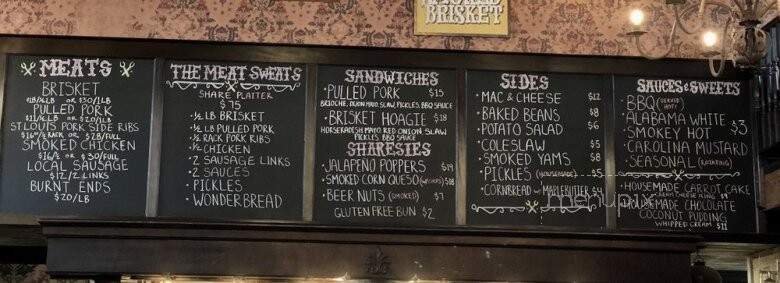 BRISKET
MEATS
BRISKET
PULLED PORK
$11/½LB OR $20/1LB
ST.LOUIS PORK SIDE RIBS
$16/½RACK OR $28/FULL
SMOKED CHICKEN
$16/½ OR $30/FULL
LOCAL SAUSAGE
$12/2 LINKS
BURNT ENDS
$20/LB
THE MEAT SWEATS
SHARE PLATTER
$75
·½LB BRISKET
·½ LB PULLED PORK
·½ RACK PORK RIBS
·½ CHICKEN
·2 SAUSAGE LINKS
·2 SAUCES
·PICKLES
·WONDERBREAD
SANDWICHES
·PULLED PORK $15
BRIOCHE, DIJON MAYO SLAW, PICKLES, BBQ SAUCE
·BRISKET HOAGIE $18
HORSERADISH MAYO RED ONION SLAW
PICKLES BBQ SAUCE
SHARESIES
·JALAPEÑO POPPERS $14
·SMOKED CORN QUESO $18
·BEER NUTS (SMOKED) $7
GLUTEN FREE BUN $2
SIDES
·MAC & CHEESE $12
·BAKED BEANS $8
·POTATO SALAD $6
·COLESLAW $5
·SMOKED YAMS $8
·PICKLES (HOUSEMADE) $5
·CORNBREAD W/ MAPLE BUTTER $4
SAUCES & SWEETS
·BBQ
·ALABAMA WHITE
·SMOKEY HOT $3
·CAROLINA MUSTARD
·SEASONAL (ROTATING)
·HOUSEMADE CARROT CAKE
CREAM CHEESE ICING $9
·HOUSEMADE CHOCOLATE
COCONUT PUDDING
WHIPPED CREAM $11
menupix